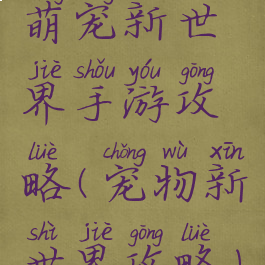 萌宠新世
jiè shǒu yóu gōng
界手游攻
lüè chǒng wù xīn
略(宠物新
shì jiè gōng lüè
世界攻略)